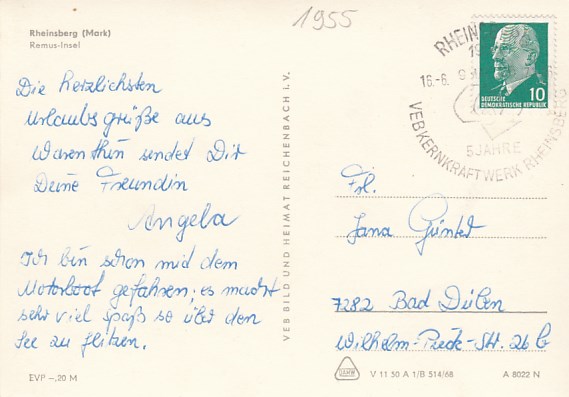 1955
Rheinsberg (Mark)
Remus-Insel
Die herzlichsten
Urlaubsgrüße aus
Warenthin sendet Dir
Deine Freundin
Angela
Ich bin schon mid dem
Motorboot gefahren; es macht
sehr viel spaß so über den
See zu flitzen.
EVP –,20 M
VEB BILD UND HEIMAT REICHENBACH I. V.
RHEINS
18.-6.
5 JAHRE
VEB KERNKRAFTWERK RHEINSBERG
DEUTSCHE
DEMOKRATISCHE REPUBLIK
10
Frl.
Jana Güntet
7282 Bad Düben
Wilhelm-Pieck-Str. 26 b
V 11 50 A 1/B 514/68
A 8022 N